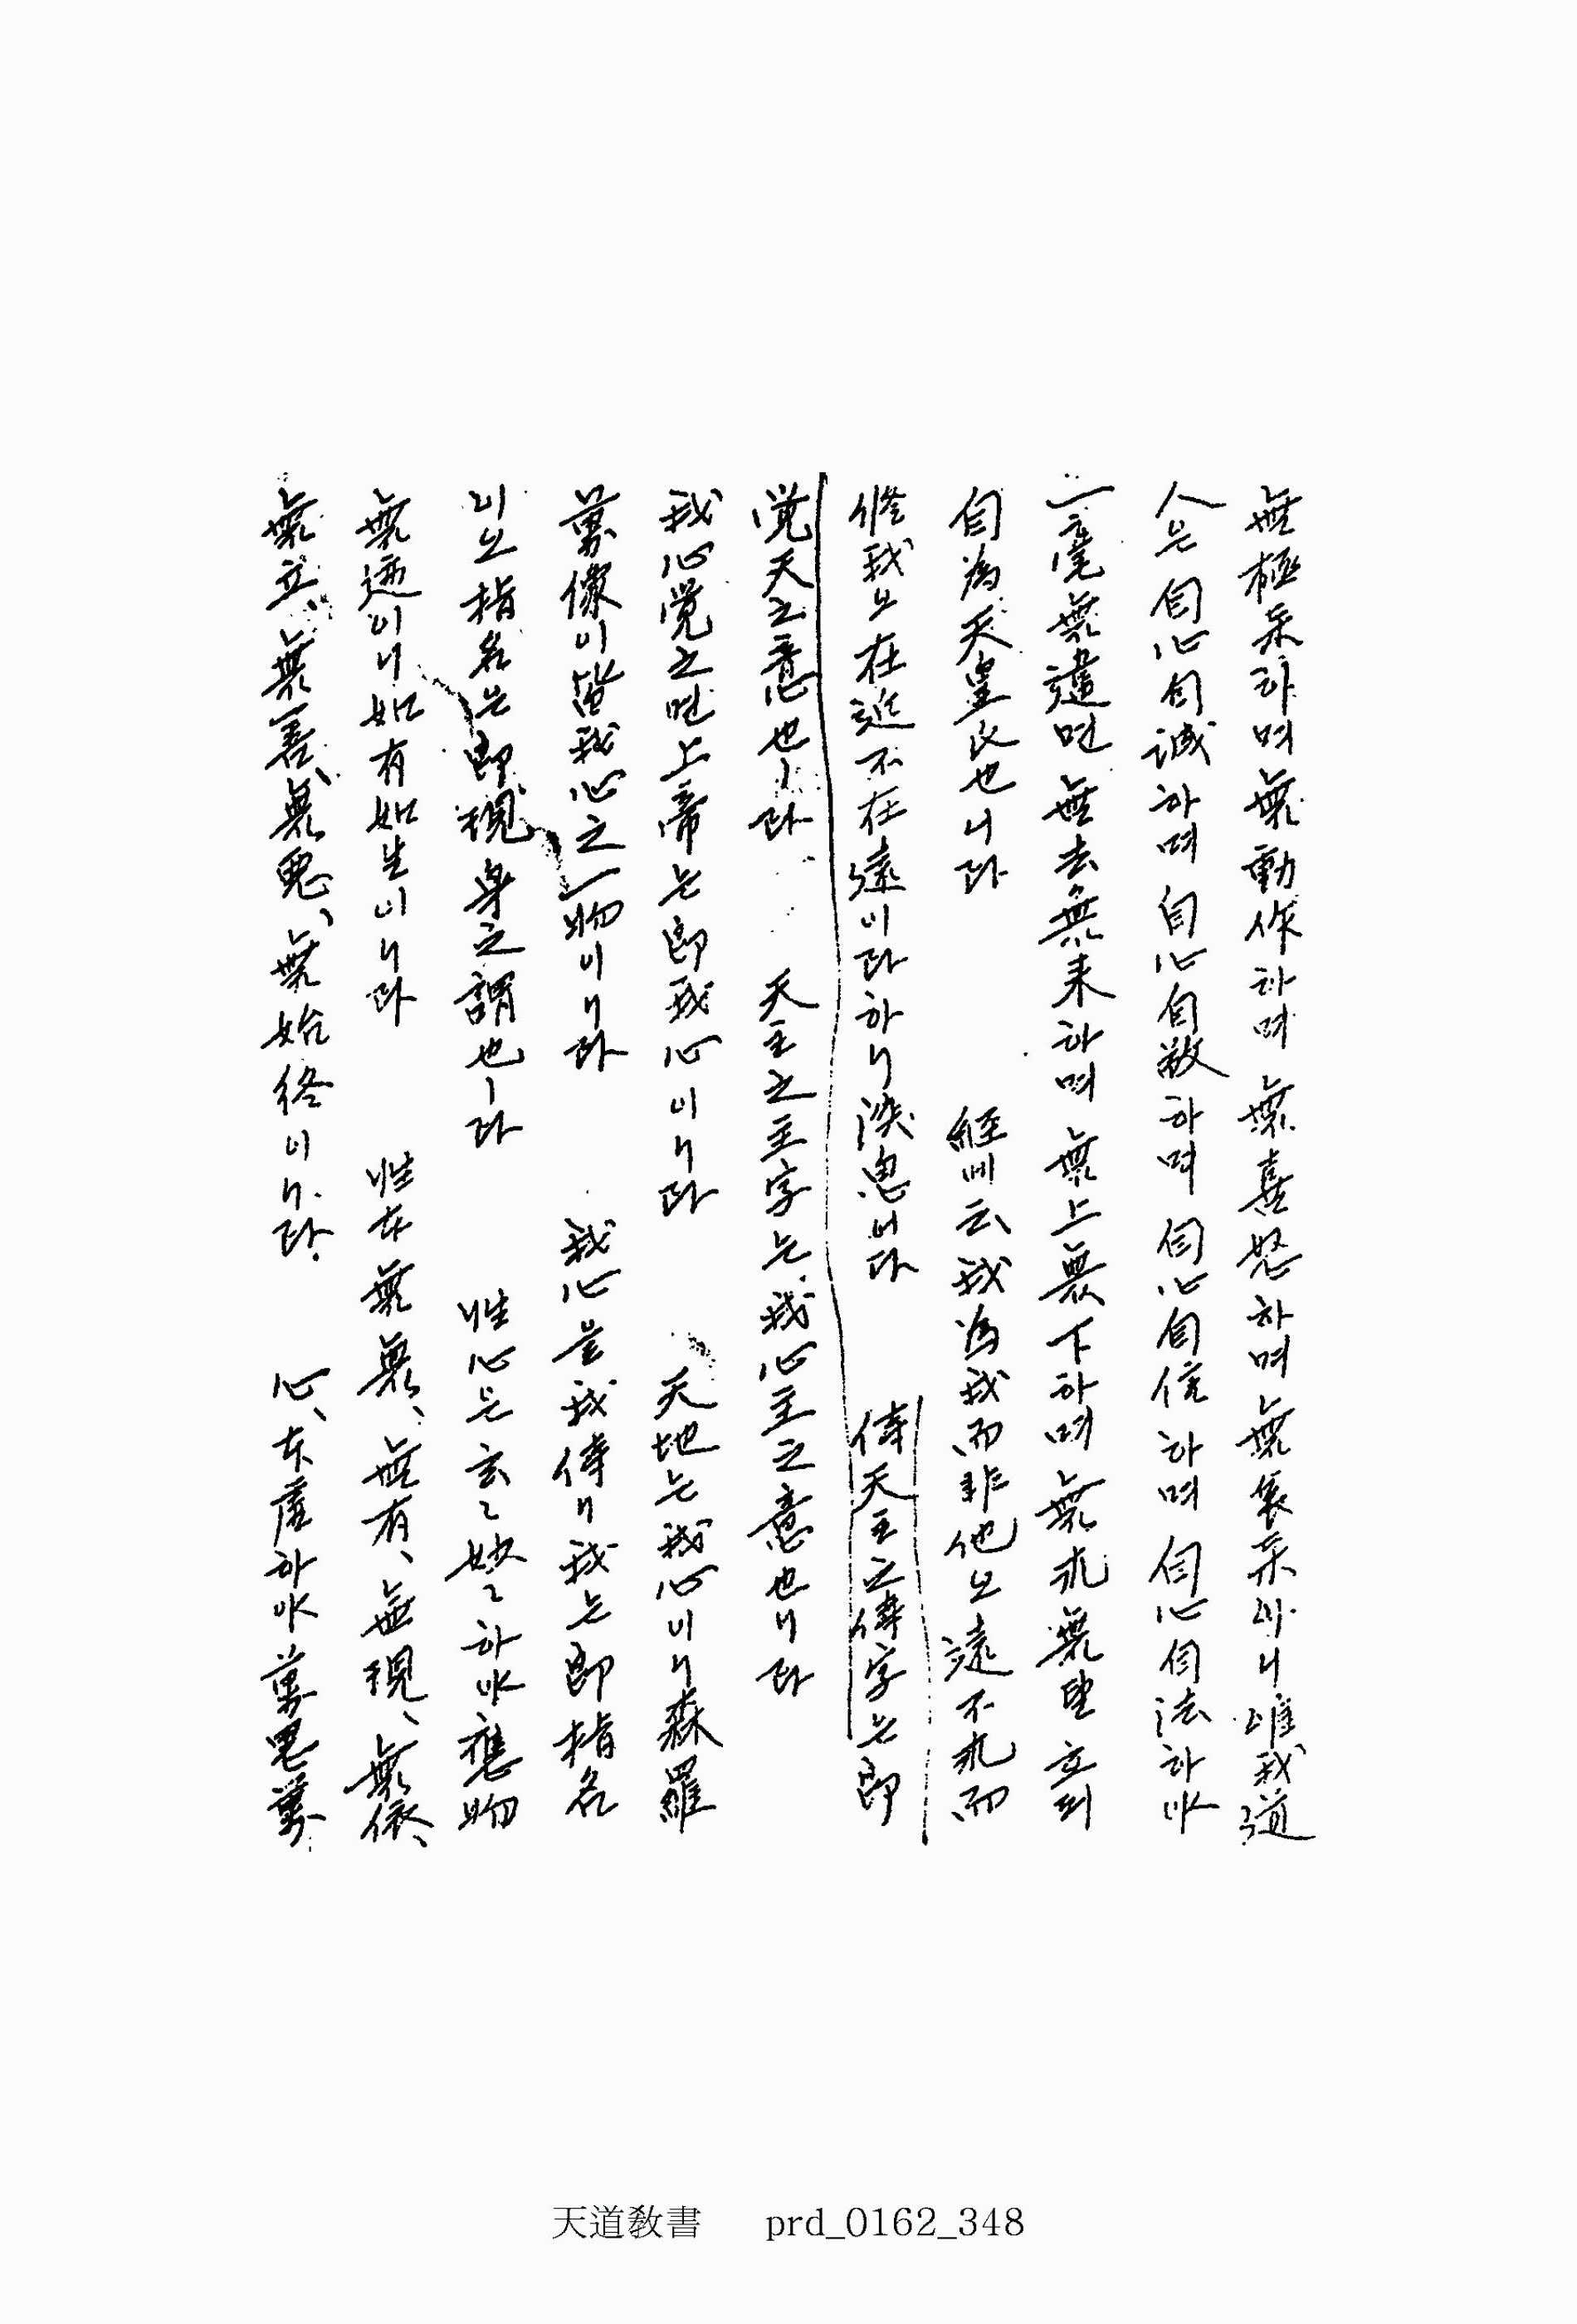 無極乐하며 無動作하며 無喜怒하며 無哀乐하나니 唯我道
人은 自心自誠하며 自心自敬하며 自心自信하며 自心自法하야
一毫無違면 無去無来하며 無上無下하며 無求無望 호되
自為天皇氏也니라 經에 云 我為我而非他오 遠不求而
修我오 在近不在遠이라하니 深思어다 侍天主之侍字는 即
覚天之意也ㅣ라 天主之主字는 我心主之意也니라
我心覚之면 上帝는 即我心이니라 天地는 我心이니 森羅
萬像이 皆我心之一物이니라 我心을 我侍니 我는 即指名
이오 指名은 即現身之謂也ㅣ라 性心은 玄々妙々하야 應物
無迹이니 如有如生이니라 性本無無、無有、無現、無依、
無立、無善、無惡、無始終이니라. 心、本虛하야 萬思萬
天道敎書 prd_0162_348